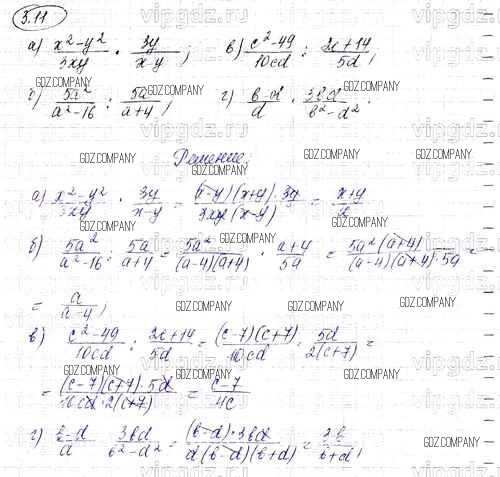 3.11
а) x²-y²/3xy · 3y/x-y ; в) c²-49/10cd : 2c+14/5d ;
б) 5a²/a²-16 : 5a/a+4 ; г) b-d/d · 3bd/b²-d² .
Решение:
а) x²-y²/3xy · 3y/x-y = (x-y)(x+y)·3y/3xy(x-y) = x+y/x
б) 5a²/a²-16 : 5a/a+4 = 5a²/(a-4)(a+4) · a+4/5a = 5a²(a+4)/(a-4)(a+4)·5a =
= a/a-4 ;
в) c²-49/10cd : 2c+14/5d = (c-7)(c+7)/10cd · 5d/2(c+7) =
= (c-7)(c+7)·5d/10cd·2(c+7) = c-7/4c
г) b-d/d · 3bd/b²-d² = (b-d)·3bd/d(b-d)(b+d) = 3b/b+d ;
GDZ.COMPANY
vipgdz.ru